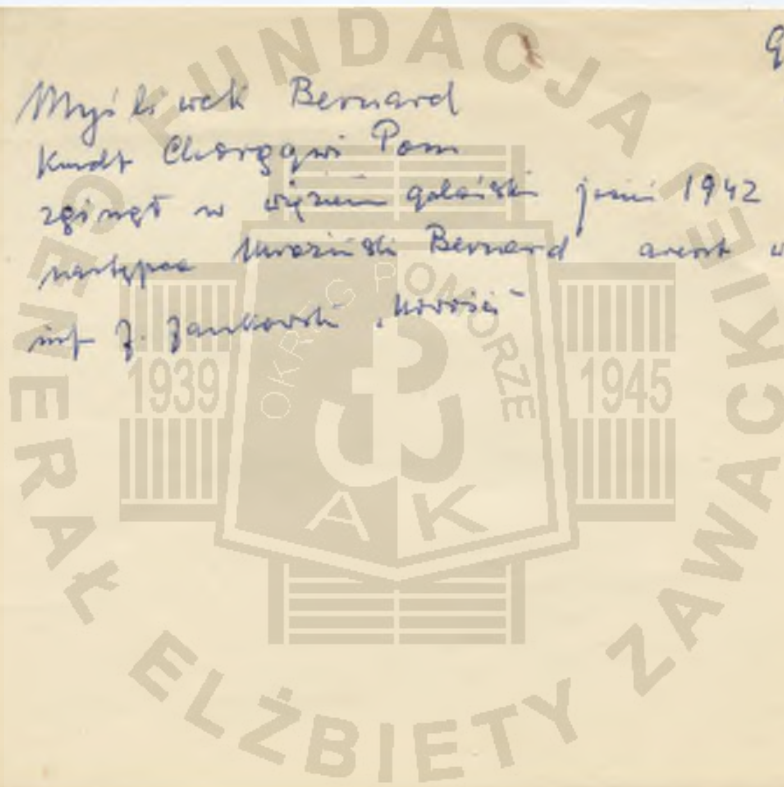 Myśliwek Bernard
Kmdt Chorągwi Pom
zginął w więzieniu gdańskim jesień 1942
następca Bernard areszt w
inf J. Jankowski
FUNDACJA GENERAŁ ELŻBIETY ZAWACKIEJ
OKRĘG POMORZE
1939 1945
AK